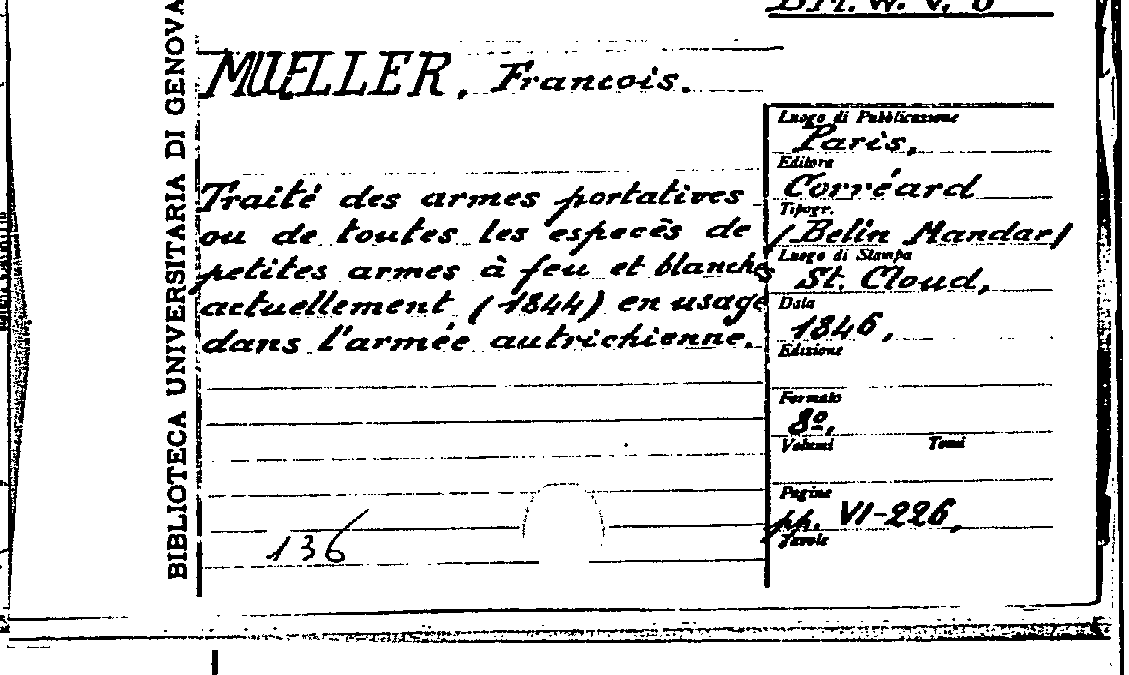 BIBLIOTECA UNIVERSITARIA DI GENOVA
MUELLER, Francois.
Traité des armes portatives
ou de toutes les especès de
petites armes à feu et blanches
actuellement (1844) en usage
dans l'armée autrichienne.
136
Luogo di Pubblicazione
Paris,
Editore
Corréard
Tipogr.
(Belin Mandar)
Luogo di Stampa
St. Cloud,
Data
1846,
Edizione
Formato
8º,
Volumi Tomi
Pagine
pp. VI-226,
Tavole